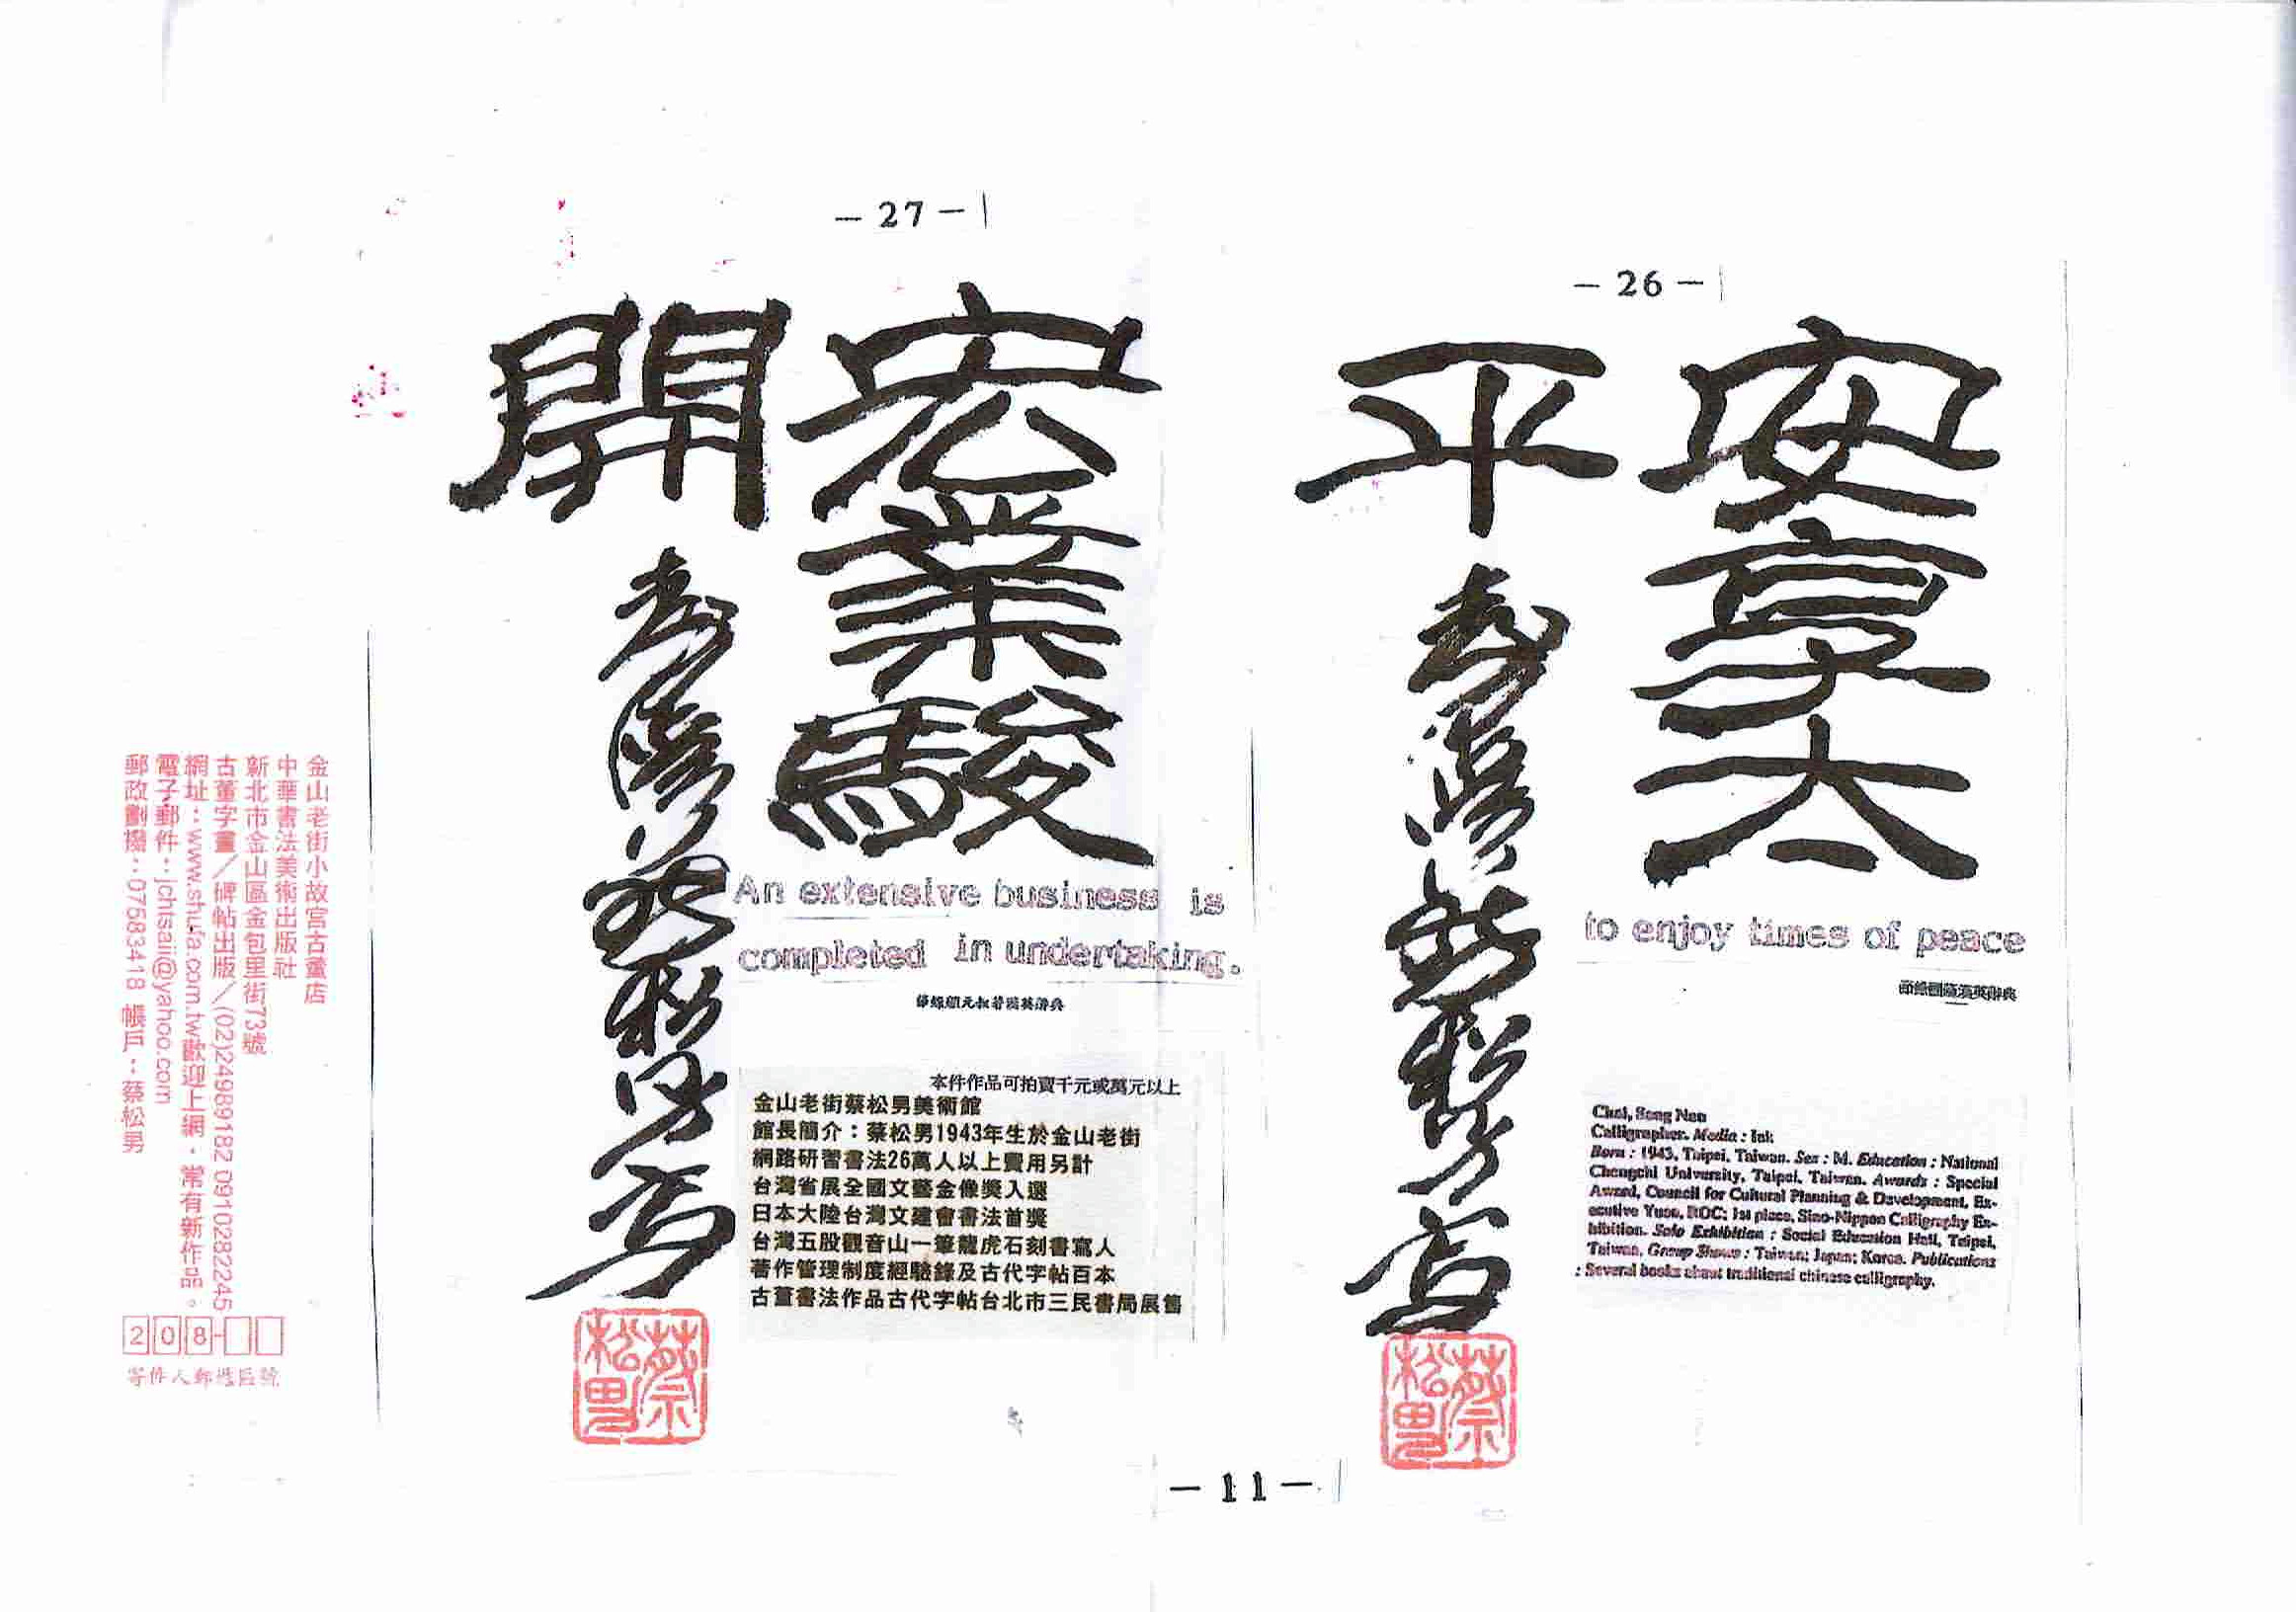 －26－
安享太
平
to enjoy times of peace
Chai, Song Nan
Calligrapher. Media : Ink
Born : 1943, Taipei, Taiwan. Sex : M. Education : National
Chengchi University, Taipei, Taiwan. Awards : Special
Award, Council for Cultural Planning & Development, Ex-
ecutive Yuan, ROC; 1st place, Sino-Nippon Calligraphy Ex-
hibition. Solo Exhibition : Social Education Hall, Taipei,
Taiwan. Group Shows : Taiwan; Japan; Korea. Publications
: Several books about traditional chinese calligraphy.
蔡松男
－27－
宏業駿
開
An extensive business is
completed in undertaking.
本件作品可拍賣千元或萬元以上
金山老街蔡松男美術館
館長簡介：蔡松男1943年生於金山老街
網路研習書法26萬人以上費用另計
台灣省展全國文藝金像獎入選
日本大陸台灣文建會書法首獎
台灣五股觀音山一筆龍虎石刻書寫人
著作管理制度經驗錄及古代字帖百本
古董書法作品古代字帖台北市三民書局展售
蔡松男
－11－
金山老街小故宮古董店
中華書法美術出版社
新北市金山區金包里街73號
古董字畫／碑帖出版／(02)24989182 0910282245
網址：www.shufa.com.tw歡迎上網，常有新作品。
電子郵件：jchtsaii@yahoo.com
郵政劃撥：07583418 帳戶：蔡松男
208-
寄件人郵遞區號